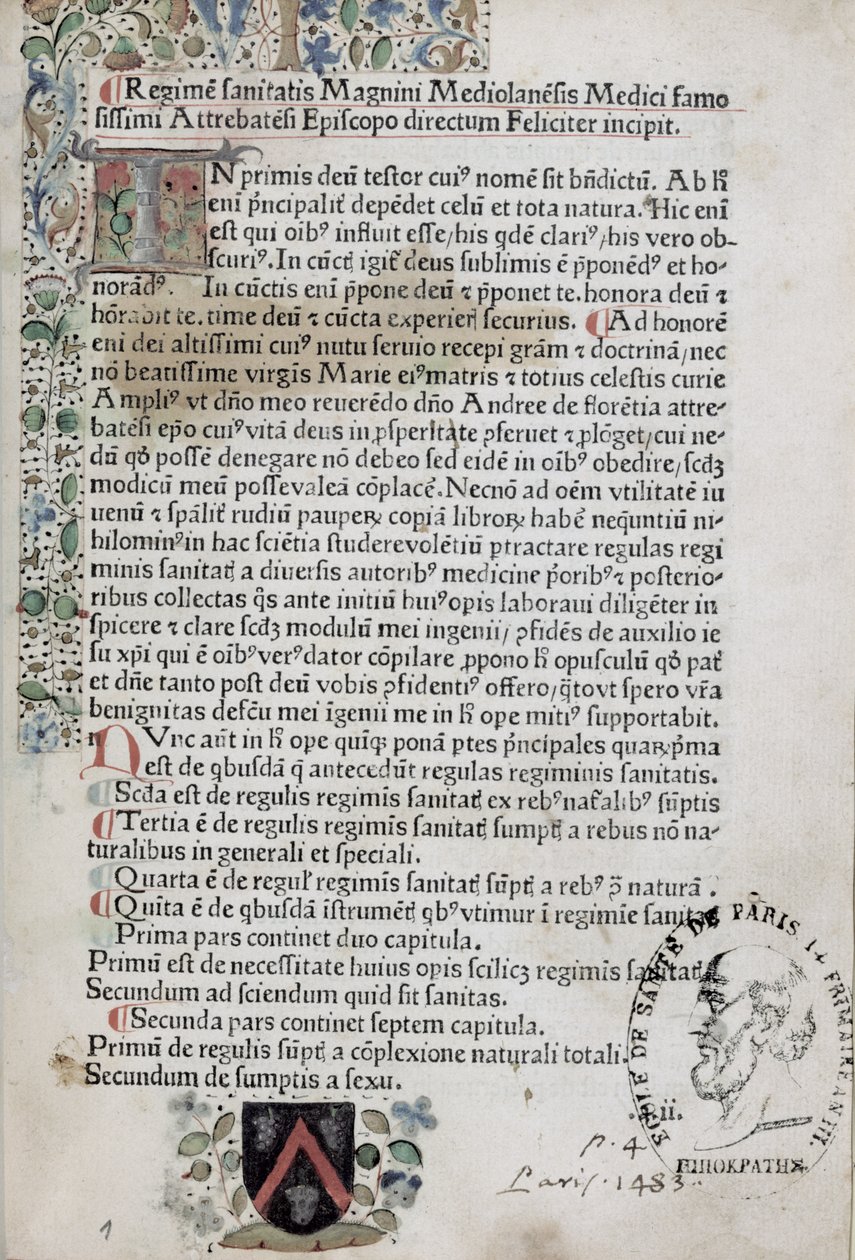 ¶Regimē sanitatis Magnini Mediolanēsis Medici famo
sissimi Attrebatēsi Episcopo directum Feliciter incipit.
IN primis deū testor cuiꝰ nomē sit bn̄dictū. Ab h̄
eni p̓ncipalit̓ depēdet celū et tota natura. Hic enī
est qui oībꝰ influit esse/his qdē clariꝰ/his vero ob-
scuriꝰ. In cūctꝭ igit̓ deus sublimis ē p̄ponēdꝰ et ho-
norādꝰ. In cūctis enī p̄pone deū ⁊ p̄ponet te. honora deū ⁊
hōrabit te. time deū ⁊ cūcta experierꝭ securius. ¶Ad honorē
eni dei altissimi cuiꝰ nutu seruio recepi grām ⁊ doctrinā/nec
nō beatissime virgīs Marie eiꝰ matris ⁊ totius celestis curie
Ampliꝰ vt dn̄o meo reuerēdo dn̄o Andree de florētia attre-
batēsi ep̄o cuiꝰ vitā deus in ꝓsperitate ꝯseruet ⁊ ꝓlōget/cui ne-
dū qḋ possē denegare nō debeo sed eidē in oībꝰ obedire/scd̄ꝫ
modicū meū posse valeā cōplacē. Necnō ad oēm vtilitatē iu
uenū ⁊ sp̄alit̓ rudiū pauperꝝ copiā librorꝝ habē neq̄untiū ni-
hilominꝰ in hac sciētia studere volētiū ꝑtractare regulas regi
minis sanitatꝭ a diuersis autoribꝰ medicine p̓oribꝰ ⁊ posterio-
ribus collectas q̄s ante initiū huiꝰ opis laboraui diligēter in
spicere ⁊ clare scd̄ꝫ modulū mei ingenii/ ꝯfidēs de auxilio ie
su xp̄i qui ē oībꝰ verꝰ dator cōpilare ꝓpono h̄ opusculū qḋ pat̓
et dn̄e tanto post deū vobis ꝯfidentiꝰ offero/q̄to vt spero vr̄a
benignitas defc̄u mei īgenii me in h̄ ope mitiꝰ supportabit.
NVnc aūt in h̄ ope quīqꝫ ponā ꝑtes p̓ncipales quarꝝ p̓ma
est de qbusdā q̄ antecedūt regulas regiminis sanitatis.
Scd̄a est de regulis regimīs sanitatꝭ ex rebꝰ nat̓alibꝰ sūptis
¶Tertia ē de regulis regimīs sanitatꝭ sumptꝭ a rebus nō na-
turalibus in generali et speciali.
¶Quarta ē de regul̓ regimīs sanitatꝭ sūptꝭ a rebꝰ p̄ naturā .
¶Quīta ē de qbusdā īstrumētꝭ qbꝰ vtimur ī regimīe sanitatꝭ
Prima pars continet duo capitula.
Primū est de necessitate huius opis scilicꝫ regimīs sanitatꝭ
Secundum ad sciendum quid sit sanitas.
¶Secunda pars continet septem capitula.
Primū de regulis sūptꝭ a cōplexione naturali totali.
Secundum de sumptis a sexu.
.ii.
p. 4
Paris. 1483.
1
DE SANTE DE PARIS
ΙΠΠΟΚΡΑΤΗΣ